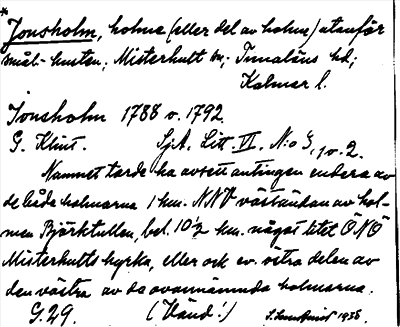 * Jonsholm, holme (eller del av holme) utanför
smål-kusten; Misterhult sn; Tunaläns hd;
Kalmar l.
Jonsholm 1788 o. 1792.
G. Klint. SjA. Litt. VI. N:o 3, 1 o. 2.
Namnet torde ha avsett antingen endera av
de båda holmarna 1 km. NNV väständan av hol-
men Björktullen, bel. 10 1/2 km. något litet ÖNÖ
Misterhults kyrka, eller ock ev. östra delen av
den västra av de ovannämnda holmarna.
G.29. (Vänd!) 1935